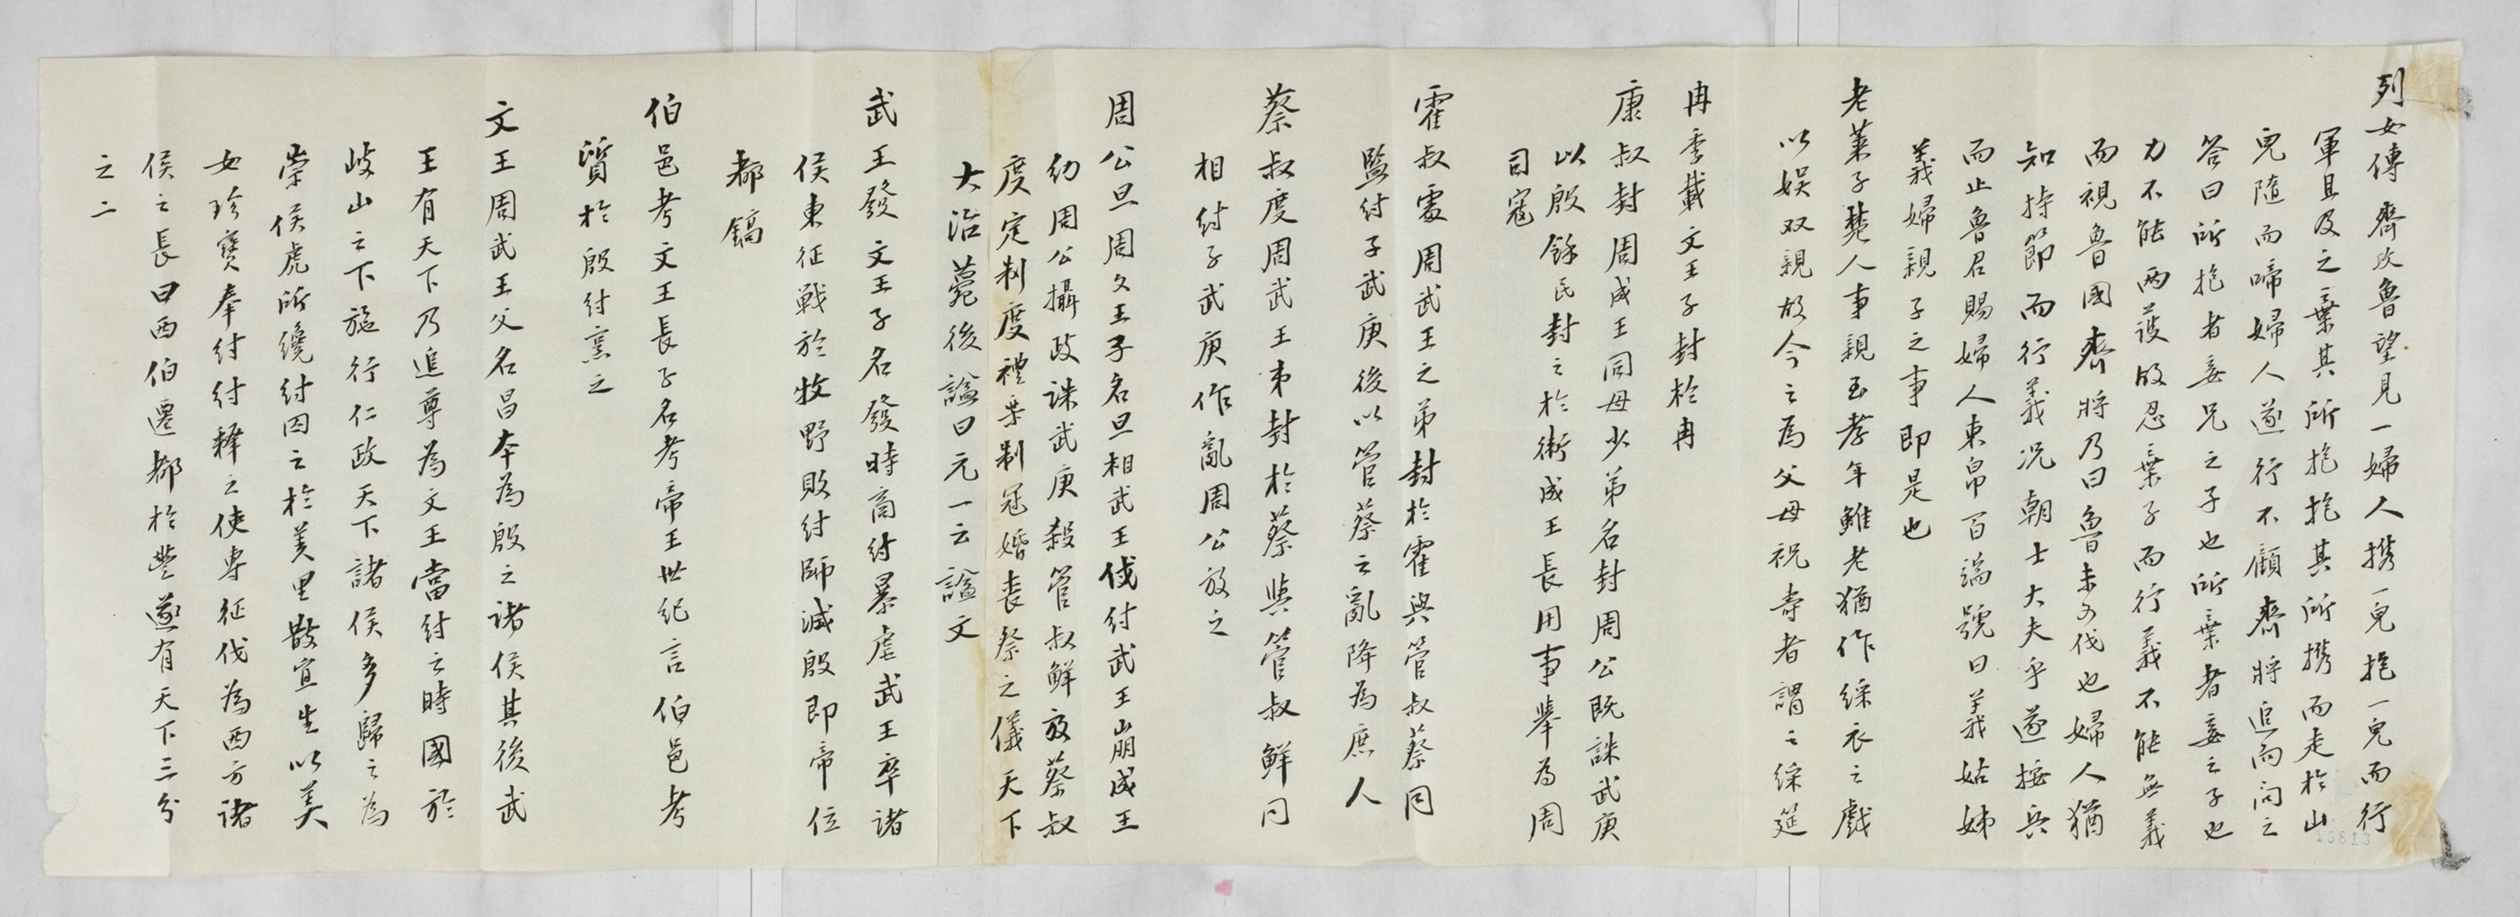 列女傳齊攻魯望見一婦人携一兒抱一兒而行
軍且及之棄其所抱抱其所携而走於山
兒隨而啼婦人遂行不顧齊將追而問之
答曰所抱者妾兄之子也所棄者妾之子也
力不能兩護故忍棄子而行義不能無義
而視魯國齊將乃曰魯未可伐也婦人猶
知持節而行義况朝士大夫乎遂按兵
而止魯君賜婦人束帛百端號曰義姑姊
義婦親子之事即是也
老萊子楚人事親至孝年雖老猶作綵衣之戲
以娛双親故今之為父母祝壽者謂之綵筵
冉季載文王子封於冉
康叔封周成王同母少弟名封周公既誅武庚
以殷餘民封之於衛成王長用事舉為周
司寇
霍叔處周武王之弟封於霍與管叔蔡同
監紂子武庚後以管蔡之亂降為庶人
蔡叔度周武王弟封於蔡與管叔鮮同
相紂子武庚作亂周公放之
周公旦周文王子名旦相武王伐紂武王崩成王
幼周公攝政誅武庚殺管叔鮮放蔡叔
度定制度禮樂制冠婚喪祭之儀天下
大治薨後謚曰元一云謚文
武王發文王子名發時商紂暴虐武王率諸
侯東征戰於牧野敗紂師滅殷即帝位
都鎬
伯邑考文王長子名考帝王世紀言伯邑考
質於殷紂烹之
文王周武王父名昌本為殷之諸侯其後武
王有天下乃追尊為文王當紂之時國於
岐山之下施行仁政天下諸侯多歸之為
崇侯虎所纔紂囚之於羑里散宜生以美
女珍寶奉紂紂釋之使專征伐為西方諸
侯之長曰西伯遷都於豐遂有天下三分
之二
13613